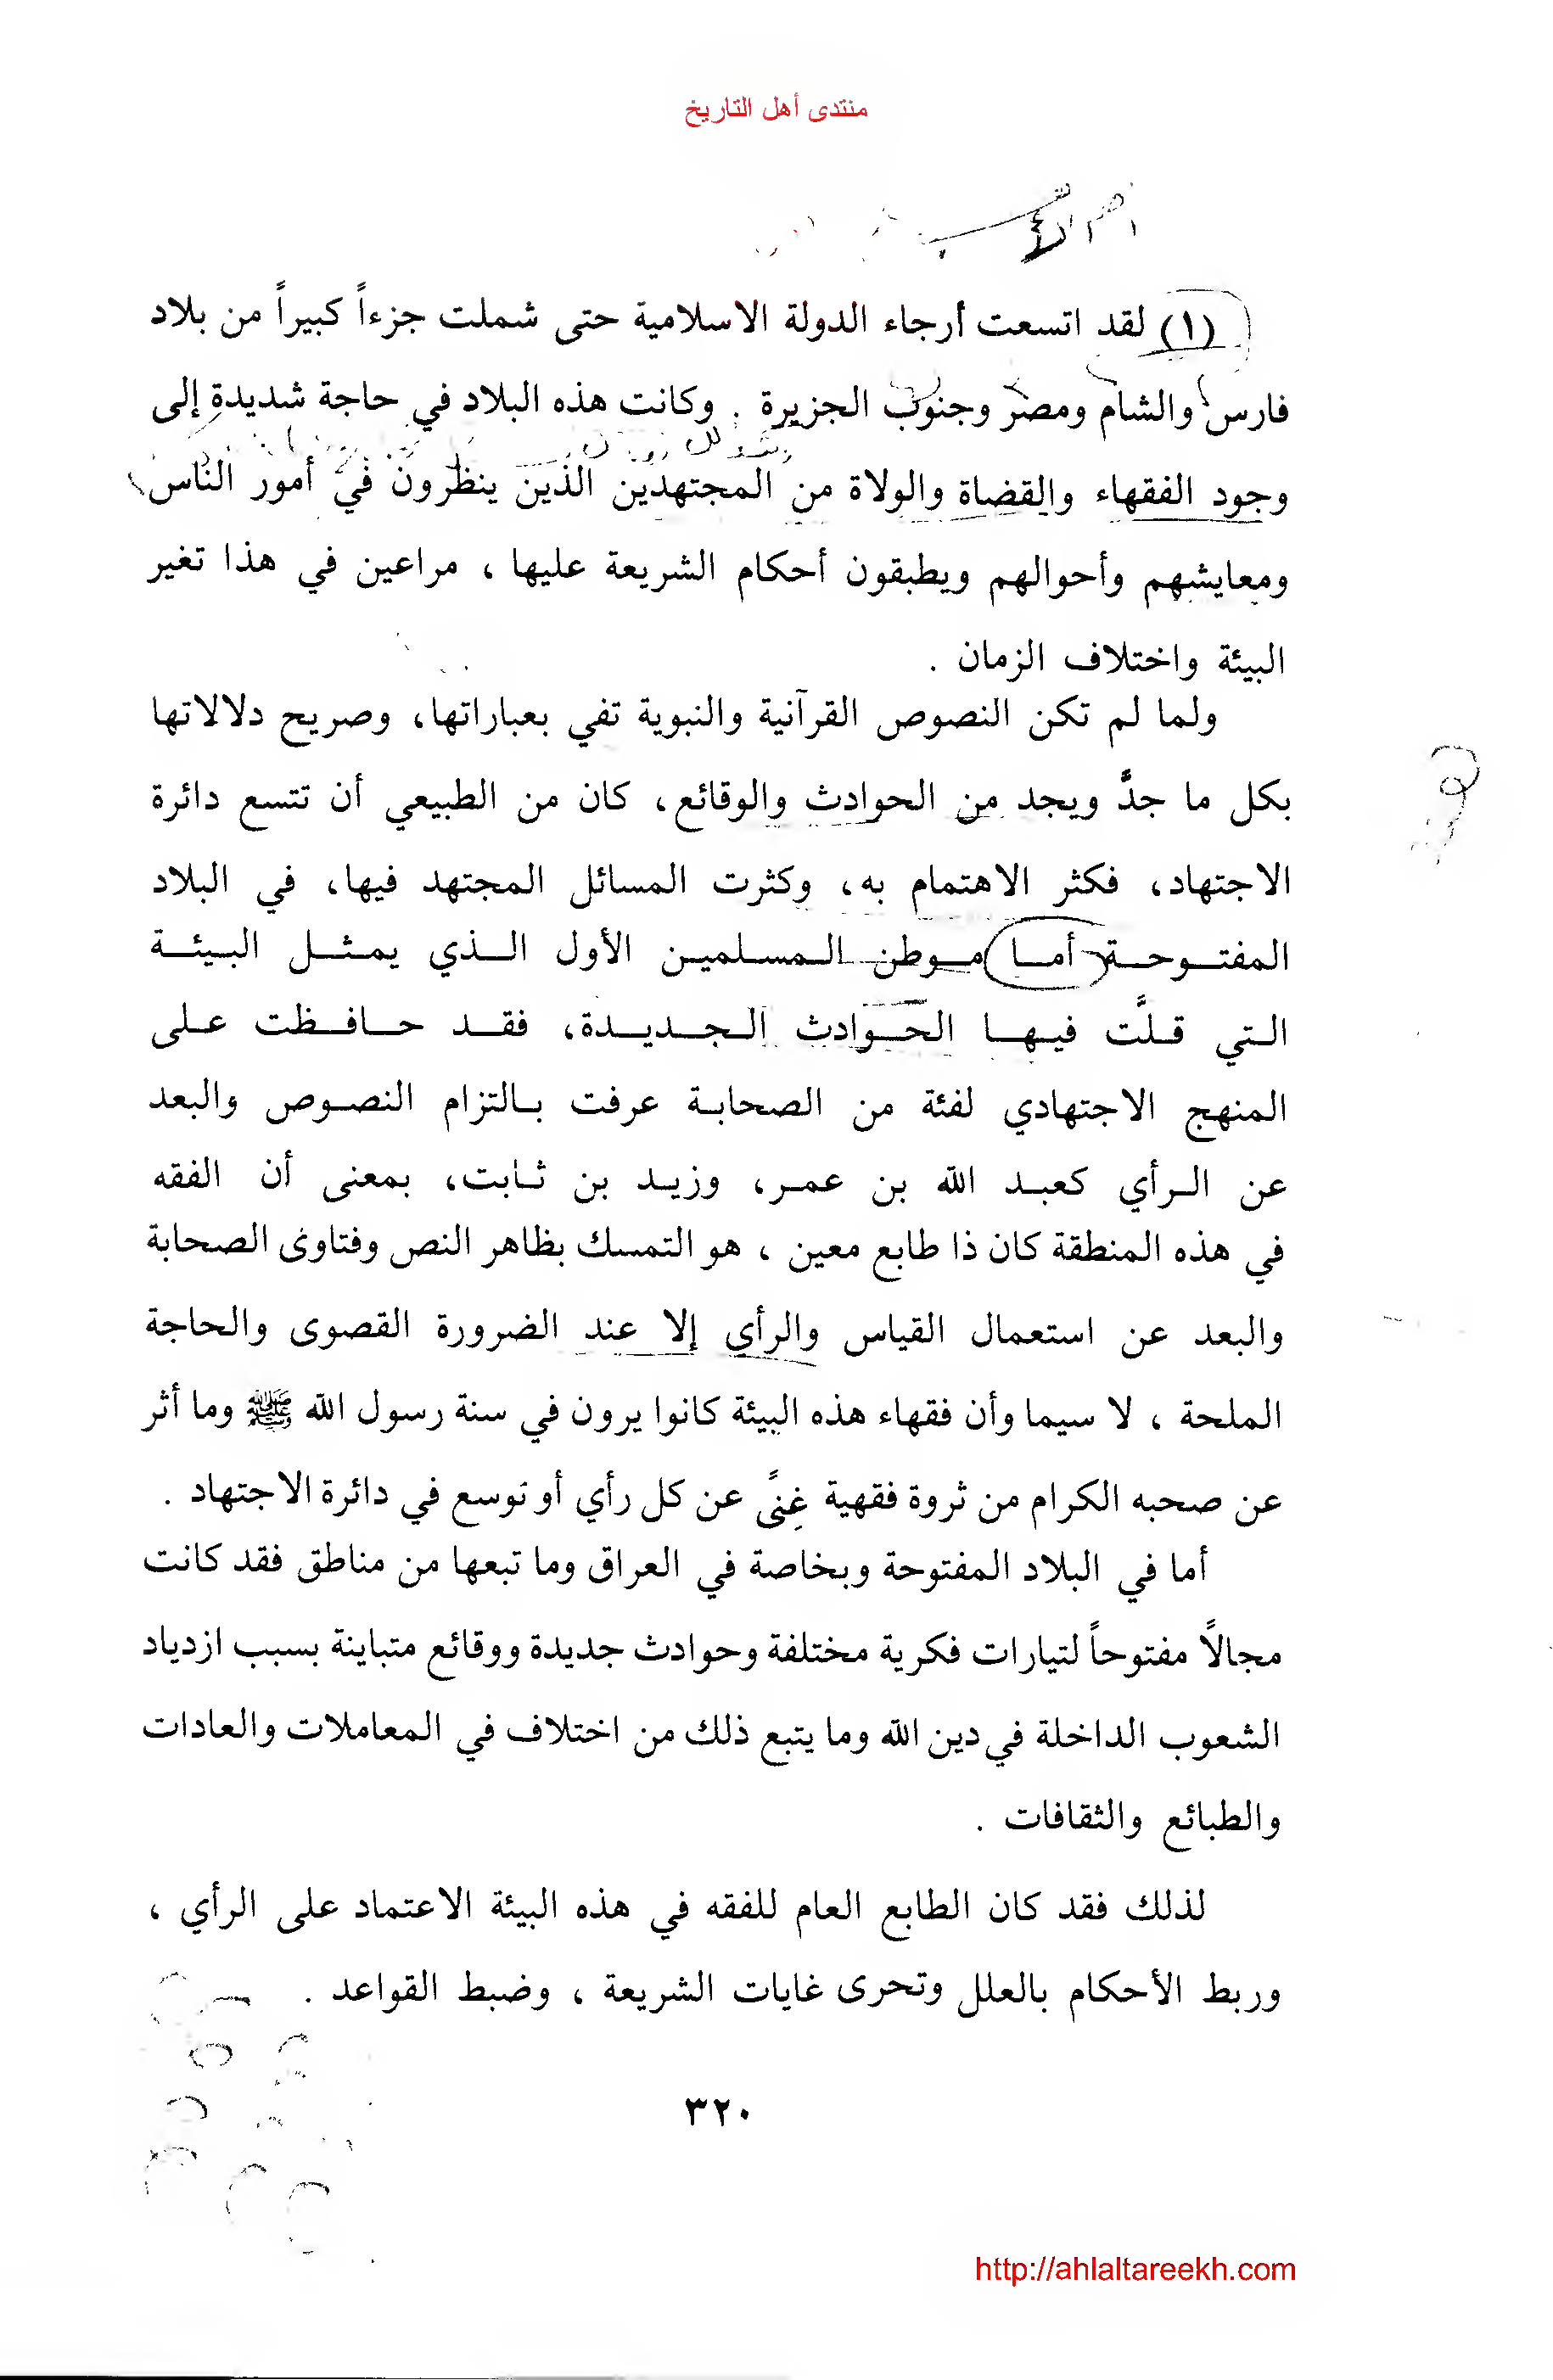 منتدى أهل التاريخ
(١) لقد اتسعت أرجاء الدولة الاسلامية حتى شملت جزءاً كبيراً من بلاد
فارس والشام ومصر وجنوب الجزيرة . وكانت هذه البلاد في حاجة شديدة إلى
وجود الفقهاء والقضاة والولاة من المجتهدين الذين ينظرون في أمور الناس
ومعايشهم وأحوالهم ويطبقون أحكام الشريعة عليها ، مراعين في هذا تغير
البيئة واختلاف الزمان .
ولما لم تكن النصوص القرآنية والنبوية تفي بعباراتها، وصريح دلالاتها
بكل ما جدَّ ويجد من الحوادث والوقائع، كان من الطبيعي أن تتسع دائرة
الاجتهاد، فكثر الاهتمام به، وكثرت المسائل المجتهد فيها، في البلاد
المفتوحة أما موطن المسلمين الأول الذي يمثل البيئة
التي قلَّت فيها الحوادث الجديدة، فقد حافظت على
المنهج الاجتهادي لفئة من الصحابة عرفت بالتزام النصوص والبعد
عن الرأي كعبد الله بن عمر، وزيد بن ثابت، بمعنى أن الفقه
في هذه المنطقة كان ذا طابع معين ، هو التمسك بظاهر النص وفتاوى الصحابة
والبعد عن استعمال القياس والرأي إلا عند الضرورة القصوى والحاجة
الملحة ، لا سيما وأن فقهاء هذه البيئة كانوا يرون في سنة رسول الله ﷺ وما أثر
عن صحبه الكرام من ثروة فقهية غِنىً عن كل رأي أو توسع في دائرة الاجتهاد .
أما في البلاد المفتوحة وبخاصة في العراق وما تبعها من مناطق فقد كانت
مجالاً مفتوحاً لتيارات فكرية مختلفة وحوادث جديدة ووقائع متباينة بسبب ازدياد
الشعوب الداخلة في دين الله وما يتبع ذلك من اختلاف في المعاملات والعادات
والطبائع والثقافات .
لذلك فقد كان الطابع العام للفقه في هذه البيئة الاعتماد على الرأي ،
وربط الأحكام بالعلل وتحرى غايات الشريعة ، وضبط القواعد .
٣٢٠
http://ahlaltareekh.com